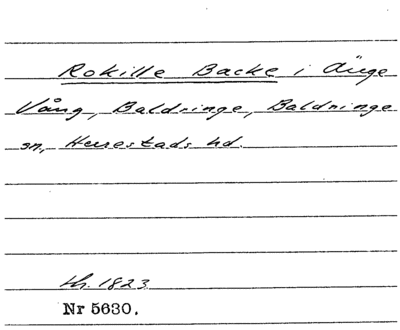 Rokille Backe i Änge
Vång, Baldringe, Baldringe
sn, Herrestads hd.
th. 1823
Nr 5630.